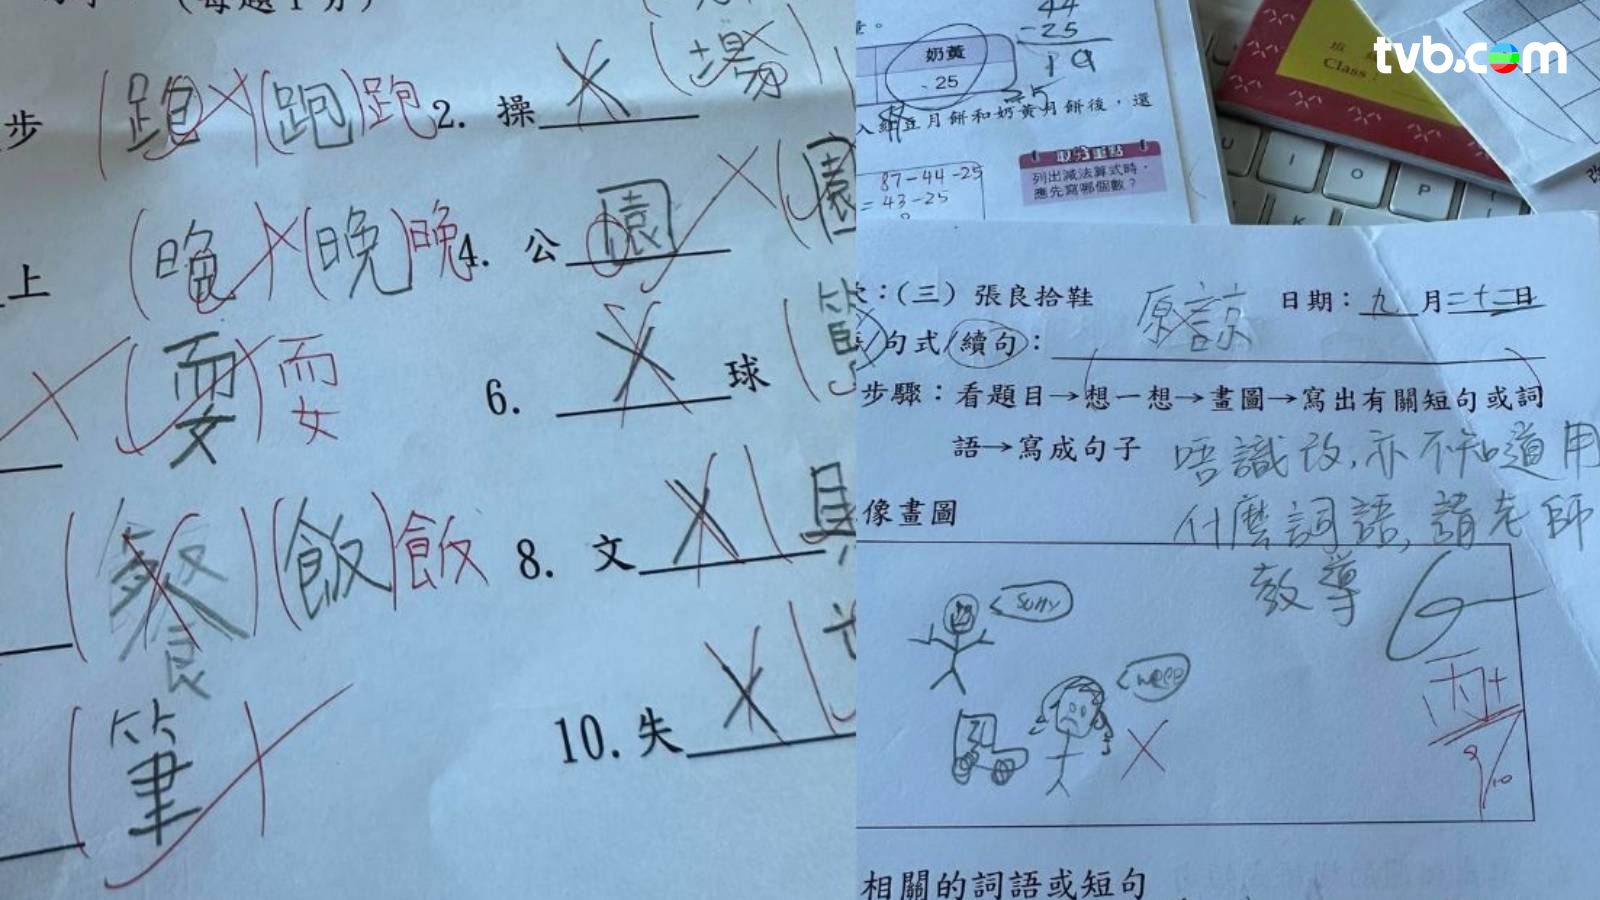 (每題1分)
步 (跑)(跑)跑 2. 操 (場)
上 (晚)(晚)晚 4. 公 園 (園
(要) 而女
6. 球
(餐)(飯)飯 8. 文 (具
(筆) 10. 失
44
-25
19
奶黃
25
入紅豆月餅和奶黃月餅後,還
87-44-25
=43-25
取分重點
列出減法算式時,
應先寫哪個數?
Class
U I O P
K
tvb.com
:(三)張良拾鞋 原諒 日期:九月二十二日
/句式/續句:
步驟:看題目→想一想→畫圖→寫出有關短句或詞
語→寫成句子
唔識改,亦不知道用
什麼詞語,請老師
教導
像畫圖
sorry
相關的詞語或短句